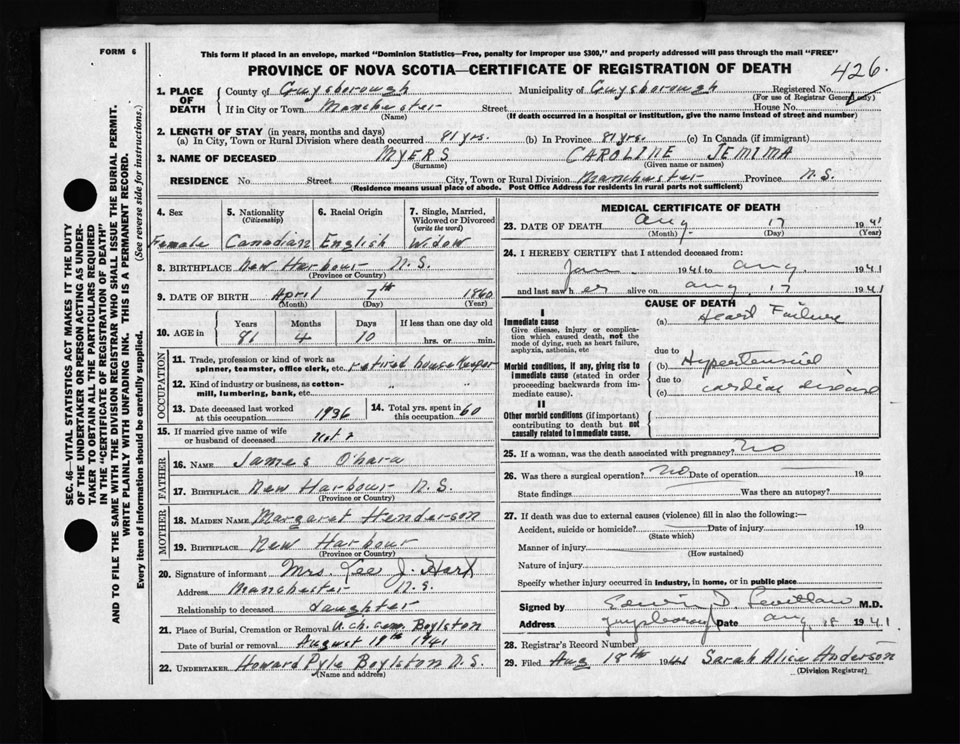 FORM 6
This form if placed in an envelope, marked "Dominion Statistics—Free, penalty for improper use $300," and properly addressed will pass through the mail "FREE"
PROVINCE OF NOVA SCOTIA—CERTIFICATE OF REGISTRATION OF DEATH
426.
1. PLACE OF DEATH
County of Guysborough Municipality of Guysborough Registered No.
(For use of Registrar General only)
If in City or Town Manchester Street House No.
(Name) (If death occurred in a hospital or institution, give the name instead of street and number)
2. LENGTH OF STAY (in years, months and days)
(a) In City, Town or Rural Division where death occurred 81 yrs. (b) In Province 81 yrs. (c) In Canada (if immigrant)
3. NAME OF DECEASED MYERS CAROLINE JEMIMA
(Surname) (Given name or names)
RESIDENCE No. Street City, Town or Rural Division Manchester Province N.S.
(Residence means usual place of abode. Post Office Address for residents in rural parts not sufficient)
SEC. 46—VITAL STATISTICS ACT MAKES IT THE DUTY
OF THE UNDERTAKER OR PERSON ACTING AS UNDER-
TAKER TO OBTAIN ALL THE PARTICULARS REQUIRED
IN THE "CERTIFICATE OF REGISTRATION OF DEATH"
AND TO FILE THE SAME WITH THE DIVISION REGISTRAR WHO SHALL ISSUE THE BURIAL PERMIT.
WRITE PLAINLY WITH UNFADING INK. THIS IS A PERMANENT RECORD.
Every item of information should be carefully supplied. (See reverse side for instructions.)
4. Sex
Female
5. Nationality
(Citizenship)
Canadian
6. Racial Origin
English
7. Single, Married,
Widowed or Divorced
(write the word)
Widow
8. BIRTHPLACE New Harbour N.S.
(Province or Country)
9. DATE OF BIRTH April 7th 1860
(Month) (Day) (Year)
10. AGE in
Years Months Days If less than one day old
81 4 10 hrs. or min.
OCCUPATION
11. Trade, profession or kind of work as
spinner, teamster, office clerk, etc. retired house keeper
12. Kind of industry or business, as cotton-
mill, lumbering, bank, etc. " "
13. Date deceased last worked
at this occupation 1936
14. Total yrs. spent in
this occupation 60
15. If married give name of wife
or husband of deceased
FATHER
16. NAME James O'hara
17. BIRTHPLACE New Harbour N.S.
(Province or Country)
MOTHER
18. MAIDEN NAME Margaret Henderson
19. BIRTHPLACE New Harbour
(Province or Country)
20. Signature of informant Mrs. Lee J. Hart
Address Manchester N.S.
Relationship to deceased daughter
21. Place of Burial, Cremation or Removal U. Ch. cem. Boylston
Date of burial or removal August 19th 1941
22. UNDERTAKER Howard Pyle Boylston N.S.
(Name and address)
MEDICAL CERTIFICATE OF DEATH
23. DATE OF DEATH Aug 17 1941
(Month) (Day) (Year)
24. I HEREBY CERTIFY that I attended deceased from:
Jan. 1941 to Aug. 1941
and last saw her alive on Aug. 17 1941
CAUSE OF DEATH
I
Immediate cause
Give disease, injury or complica-
tion which caused death, not the
mode of dying, such as heart failure,
asphyxia, asthenia, etc
(a) Heart Failure
due to
Morbid conditions, if any, giving rise to
immediate cause (stated in order
proceeding backwards from im-
mediate cause).
(b) Hypertensive
due to cardiac disease
(c)
II
Other morbid conditions (if important)
contributing to death but not
causally related to immediate cause.
25. If a woman, was the death associated with pregnancy? No
26. Was there a surgical operation? No Date of operation 19
State findings Was there an autopsy?
27. If death was due to external causes (violence) fill in also the following:—
Accident, suicide or homicide? Date of injury 19
(State which)
Manner of injury
(How sustained)
Nature of injury
Specify whether injury occurred in industry, in home, or in public place
Signed by Edwin D. M.D.
Address Guysborough Date Aug 18 1941.
28. Registrar's Record Number
29. Filed Aug 18th 1941 Sarah Alice Anderson
(Division Registrar)